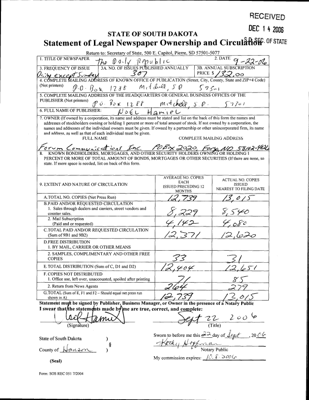 RECEIVED
DEC 14 2006
STATE OF SOUTH DAKOTA
Statement of Legal Newspaper Ownership and Circulation
OF STATE
Return to: Secretary of State, 500 E. Capitol, Pierre, SD 57501-5077
1. TITLE OF NEWSPAPER
The Daily Republic
2. DATE
9-22-06
3. FREQUENCY OF ISSUE
Daily except Sunday
3A. NO. OF ISSUES PUBLISHED ANNUALLY
307
3B. ANNUAL SUBSCRIPTION
PRICE $ 132.00
4. COMPLETE MAILING ADDRESS OF KNOWN OFFICE OF PUBLICATION (Street, City, County, State and ZIP+4 Code)
(Not printers)
P.O. Box 1288 Mitchell, SD 57301
5. COMPLETE MAILING ADDRESS OF THE HEADQUARTERS OR GENERAL BUSINESS OFFICES OF THE
PUBLISHER (Not printers)
P.O. Box 1288 Mitchell, SD 57301
6. FULL NAME OF PUBLISHER:
Noel Hamiel
7. OWNER (If owned by a corporation, its name and address must be stated and
FULL NAME
COMPLETE MAILING ADDRESS
Forum Communications Inc PO Box 2020 Fargo ND
8. KNOWN BONDHOLDERS, MORTGAGEES, AND OTHER SECURITY HOLDERS OWNING OR HOLDING 1
PERCENT OR MORE OF TOTAL AMOUNT OF BONDS, MORTGAGES OR OTHER SECURITIES (If there are none, so
state. If more space is needed, list on back of this form.
9. EXTENT AND NATURE OF CIRCULATION
AVERAGE NO. COPIES
EACH
ISSUED PRECEDING 12
MONTHS
ACTUAL NO. COPIES
ISSUED
NEAREST TO FILING DATE
A. TOTAL NO. COPIES (Net Press Run)
12,739
13,015
B. PAID AND/OR REQUESTED CIRCULATION
1. Sales through dealers and carriers, street vendors and
counter sales.
8,229
8,540
2. Mail Subscription
(Paid and or requested)
4,142
4,080
C. TOTAL PAID AND/OR REQUESTED CIRCULATION
(Sum of 9B1 and 9B2)
12,371
12,620
D. FREE DISTRIBUTION
1. BY MAIL, CARRIER OR OTHER MEANS
2. SAMPLES, COMPLIMENTARY AND OTHER FREE
COPIES
33
31
E. TOTAL DISTRIBUTION (Sum of C, D1 and D2)
12,404
12,651
F. COPIES NOT DISTRIBUTED
1. Office use, left over, unaccounted, spoiled after printing
71
85
2. Return from News Agents
264
279
G. TOTAL (Sum of E, F1 and F2 - Should equal net press run
shown in A)
12,739
13,015
Statement must be signed by Publisher, Business Manager, or Owner in the presence of a Notary Public
I swear that the statements made by me are true, correct, and complete:
Noel Hamiel
Sept 22 2006
(Signature)
(Title)
State of South Dakota )
§
County of Hanson )
(Seal)
Sworn to before me this 22 day of Sept, 2006
Notary Public
My commission expires:
Form: SOS REC 051 7/2004